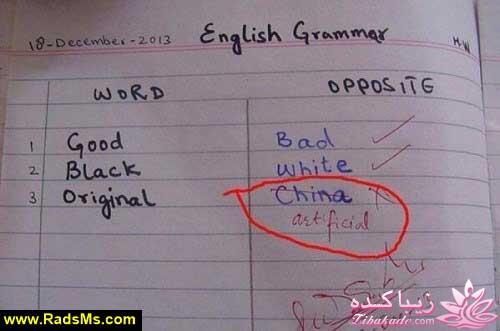 18-December-2013 English Grammar H.W
WORD OPPOSITE
1 Good Bad
2 Black White
3 Original China
artificial
زیباکده
Zibakade.com
www.RadsMs.com